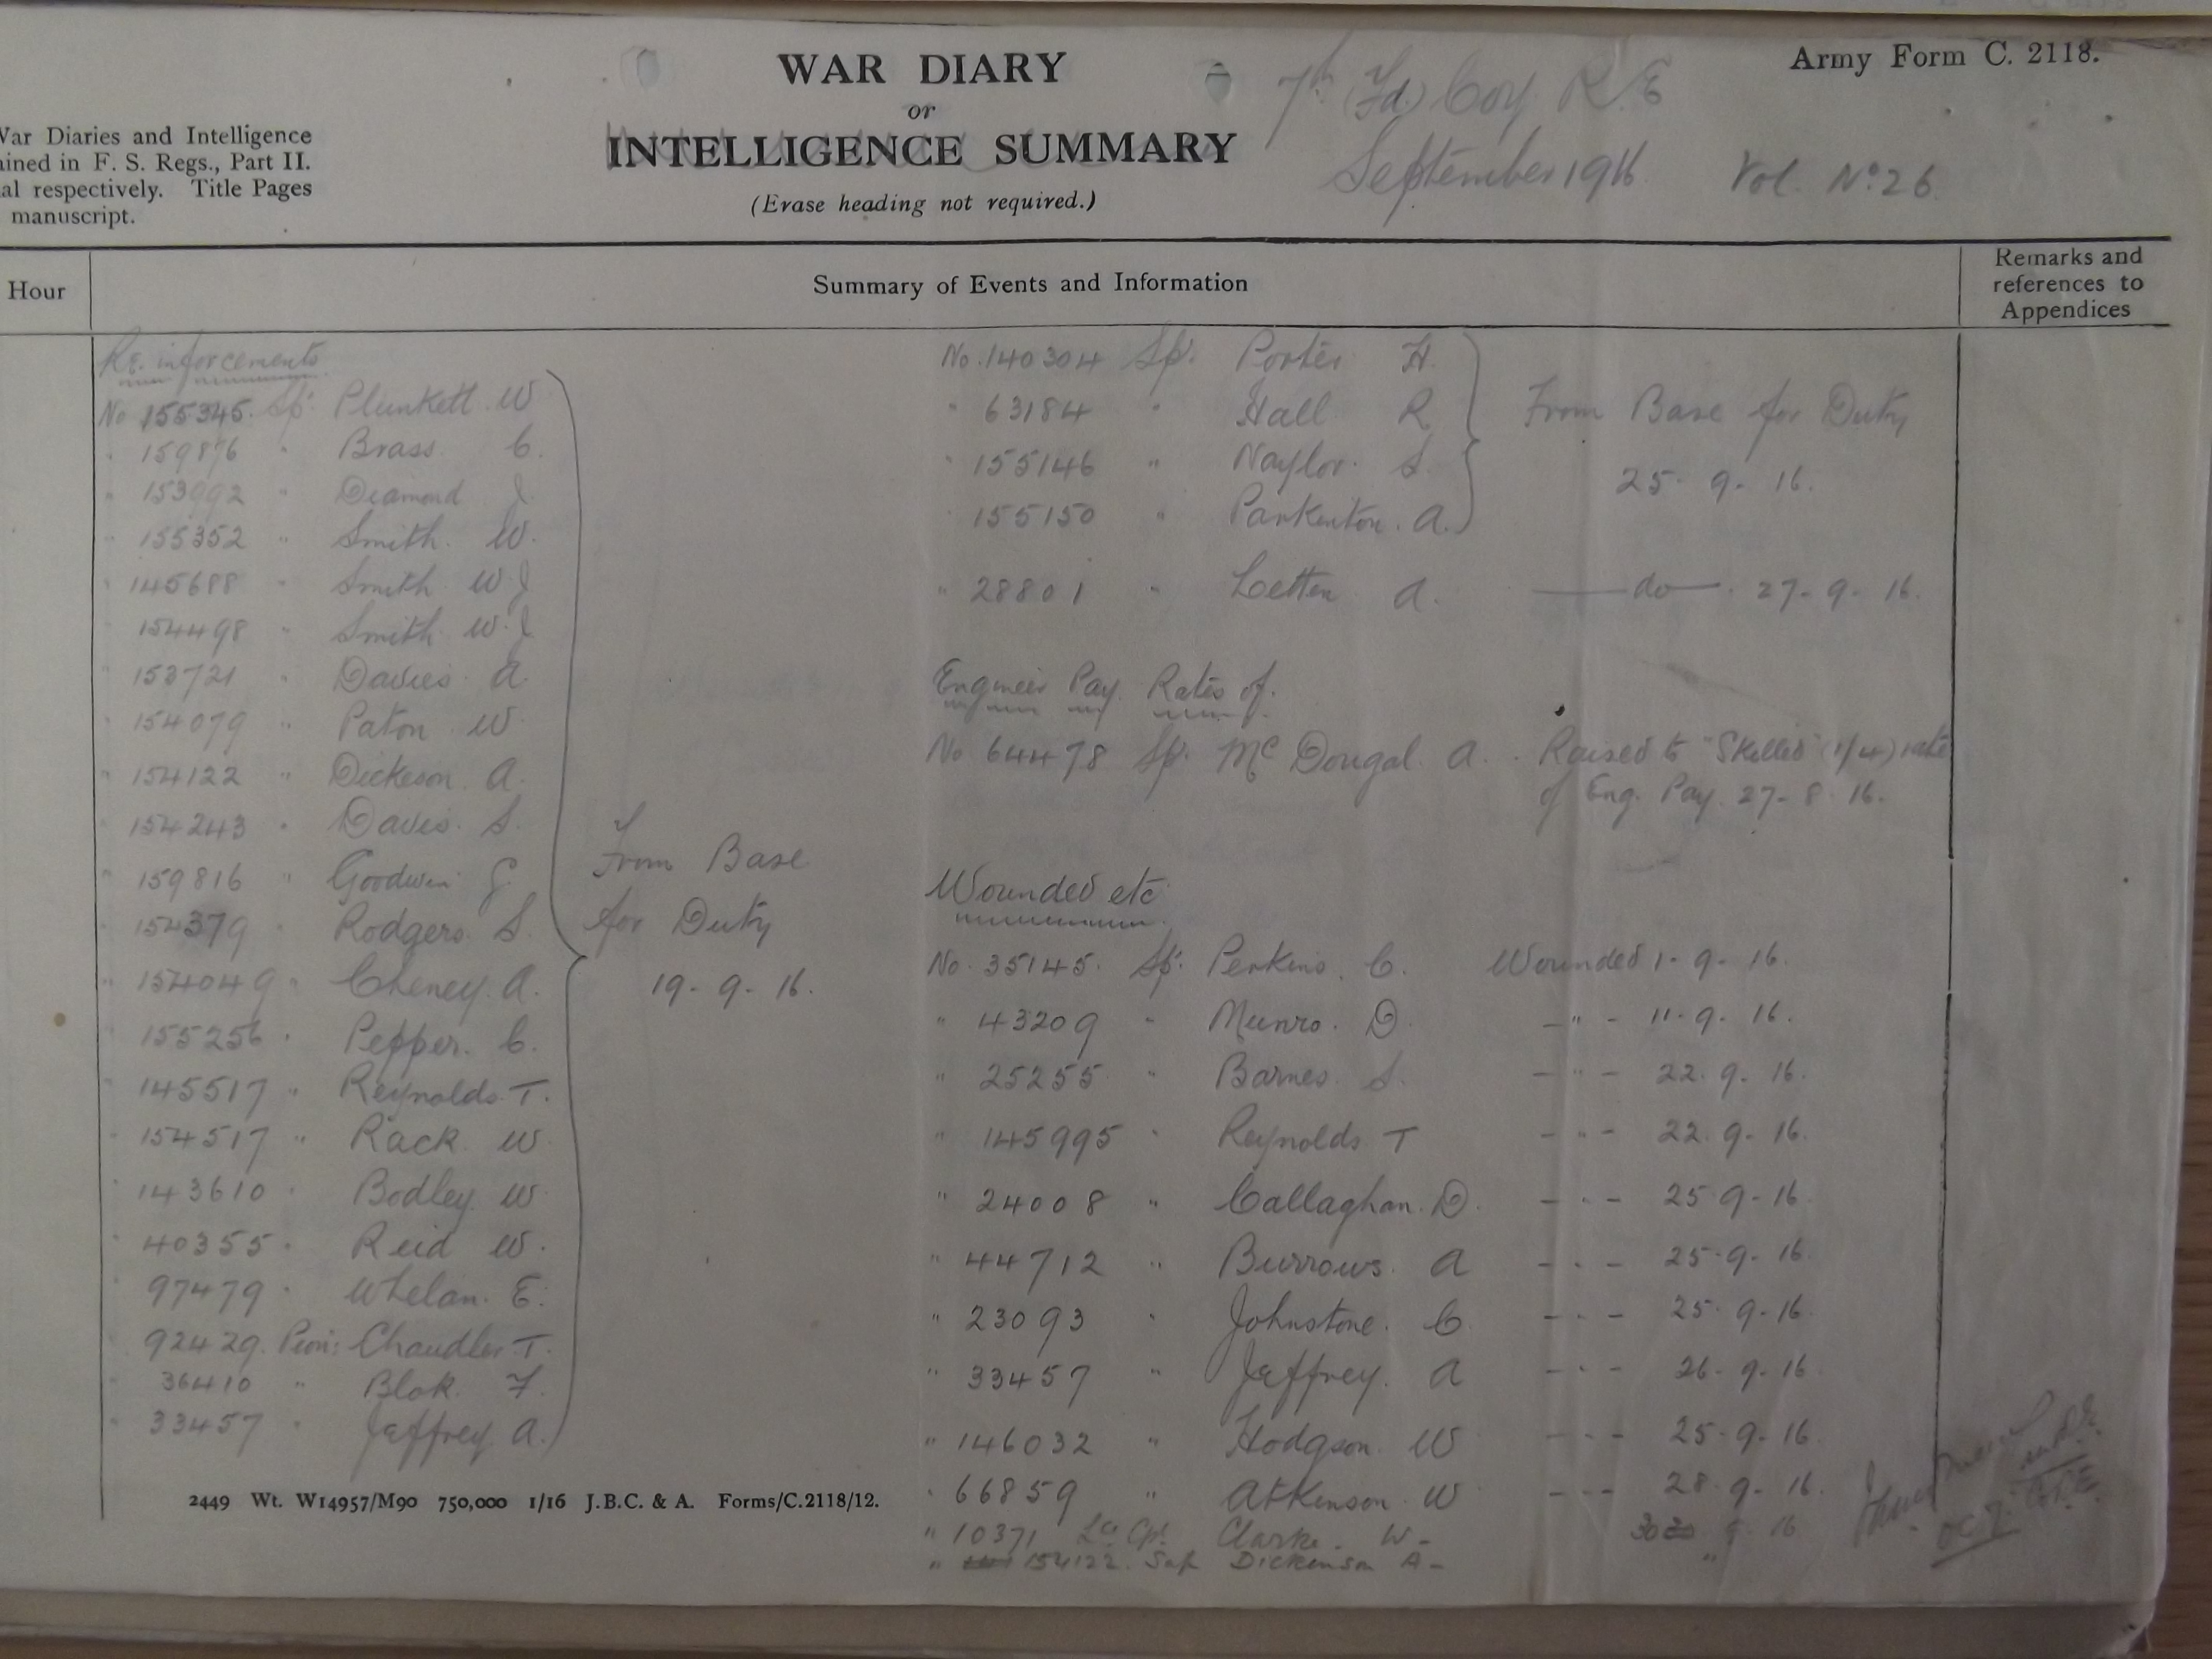 WAR DIARY
or
INTELLIGENCE SUMMARY
(Erase heading not required.)
7th (Fd) Coy R.E
September 1916 Vol. No. 26
Army Form C. 2118.
War Diaries and Intelligence
ained in F. S. Regs., Part II.
al respectively. Title Pages
manuscript.
Hour
Summary of Events and Information
Remarks and
references to
Appendices
Re.inforcements
No 155345. Sp. Plunkett. W
" 159876 " Brass. C.
" 153992 " Diamond J.
" 155352 " Smith. W.
" 145688 " Smith W.J
" 154498 " Smith W.J
" 153721 " Davies. A.
" 154079 " Paton. W.
" 154122 " Dickeson. A.
" 154243 " Davis. S.
" 159816 " Goodwin G.
" 154379 " Rodgers. S.
" 154049 " Cheney. A.
" 155256 " Pepper. C.
" 145517 " Reynolds. T.
" 154517 " Rack. W
" 143610 " Bodley. W
" 40355 " Reid W.
" 97479 " Whelan. E.
" 92429. Pion: Chandler T.
" 36410 " Blok. F.
" 33457 " Jeffrey. A.
From Base
for Duty
19-9-16.
No. 140304 Sp. Porter H.
" 63184 " Hall R
" 155146 " Naylor. S.
" 155150 " Parkinton. A.
From Base for Duty
25-9-16.
" 28801 " Letten A. —do—. 27-9-16.
Engineer Pay. Rates of.
No 64478 Sp. Mc Dougal. A. Raised to "Skilled" (1/4) rate
of Eng. Pay. 27-8-16.
Wounded etc
No. 35145. Sp. Perkins. C. Wounded 1-9-16.
" 43209 " Munro. D. -"- 11-9-16.
" 25255 " Barnes. S. -"- 22.9.16.
" 145995 " Reynolds T -"- 22.9.16.
" 24008 " Callaghan. D. -"- 25.9-16.
" 44712 " Burrows. A -"- 25.9-16.
" 23093 " Johnstone. C -"- 25.9-16.
" 33457 " Jeffrey. A -"- 26-9-16.
" 146032 " Hodgson. W -"- 25-9-16.
" 66859 " Atkinson. W -"- 28.9-16.
" 10371 Lce Cpl. Clarke. W- 30 9 16
" 154122. Sap Dickinson A- "
2449 Wt. W14957/M90 750,000 1/16 J.B.C. & A. Forms/C.2118/12.